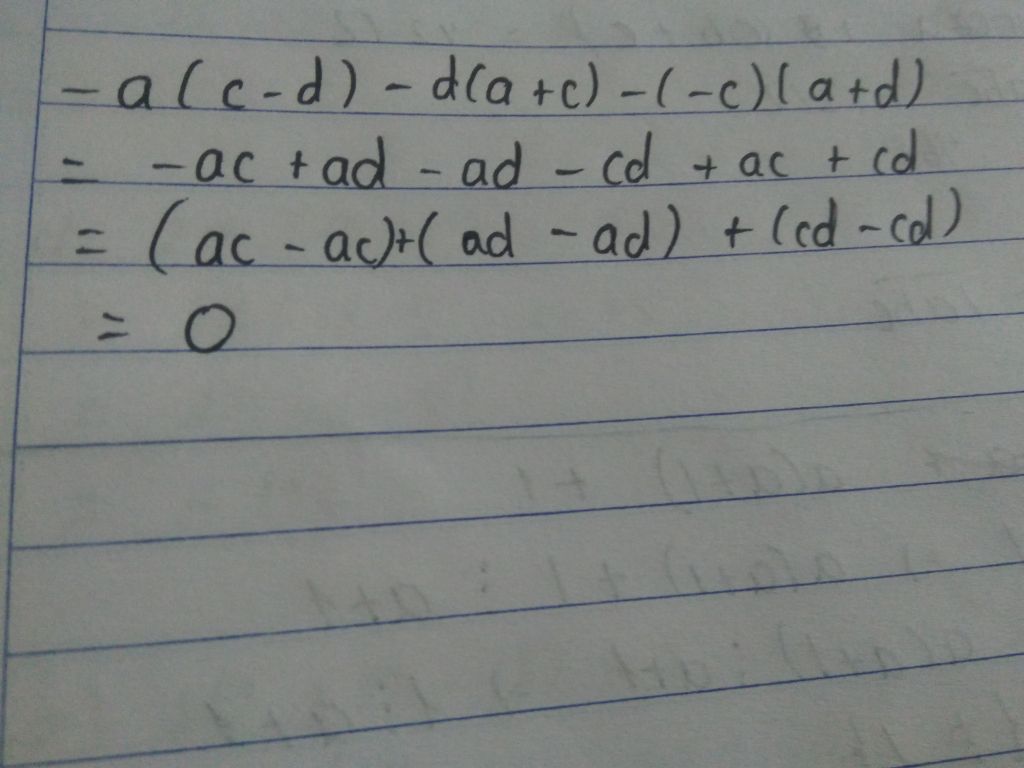 -a(c-d)-d(a+c)-(-c)(a+d)
= -ac + ad - ad - cd + ac + cd
= (ac - ac)+(ad - ad) + (cd - cd)
= 0